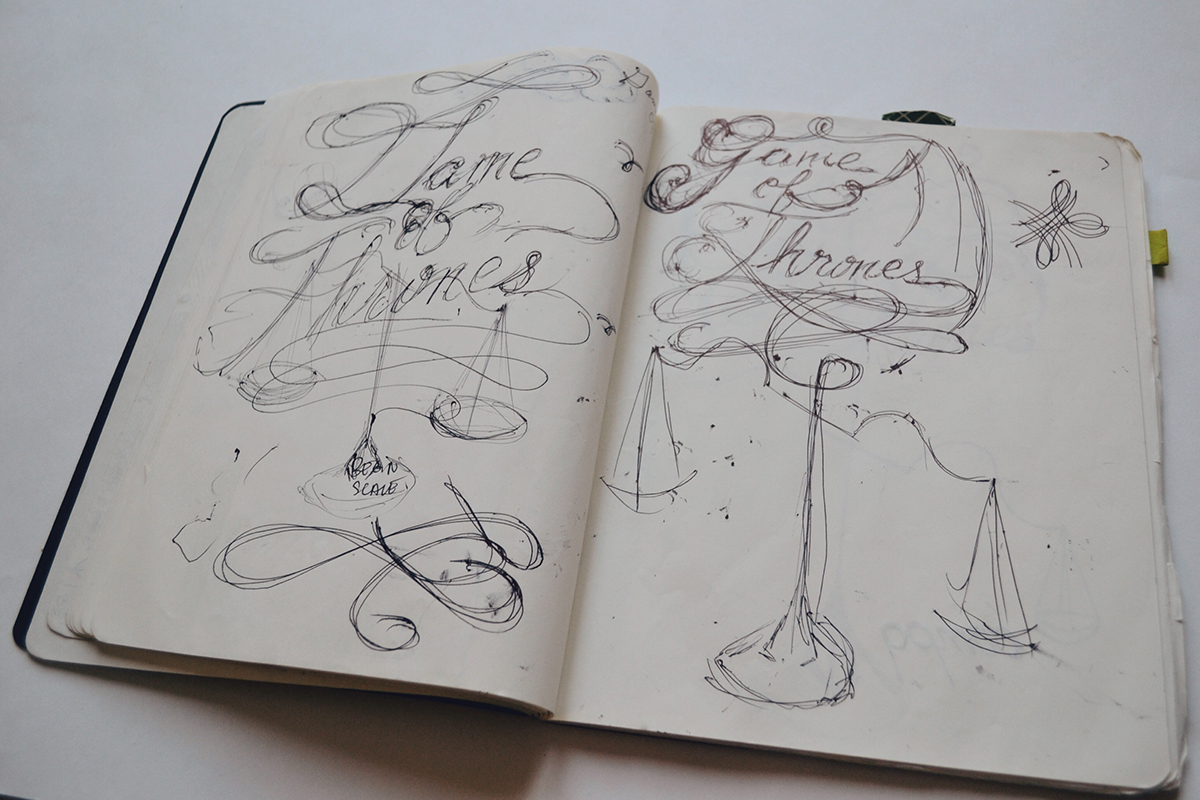 Game
of
Thrones
SCALE
Game
of
Thrones